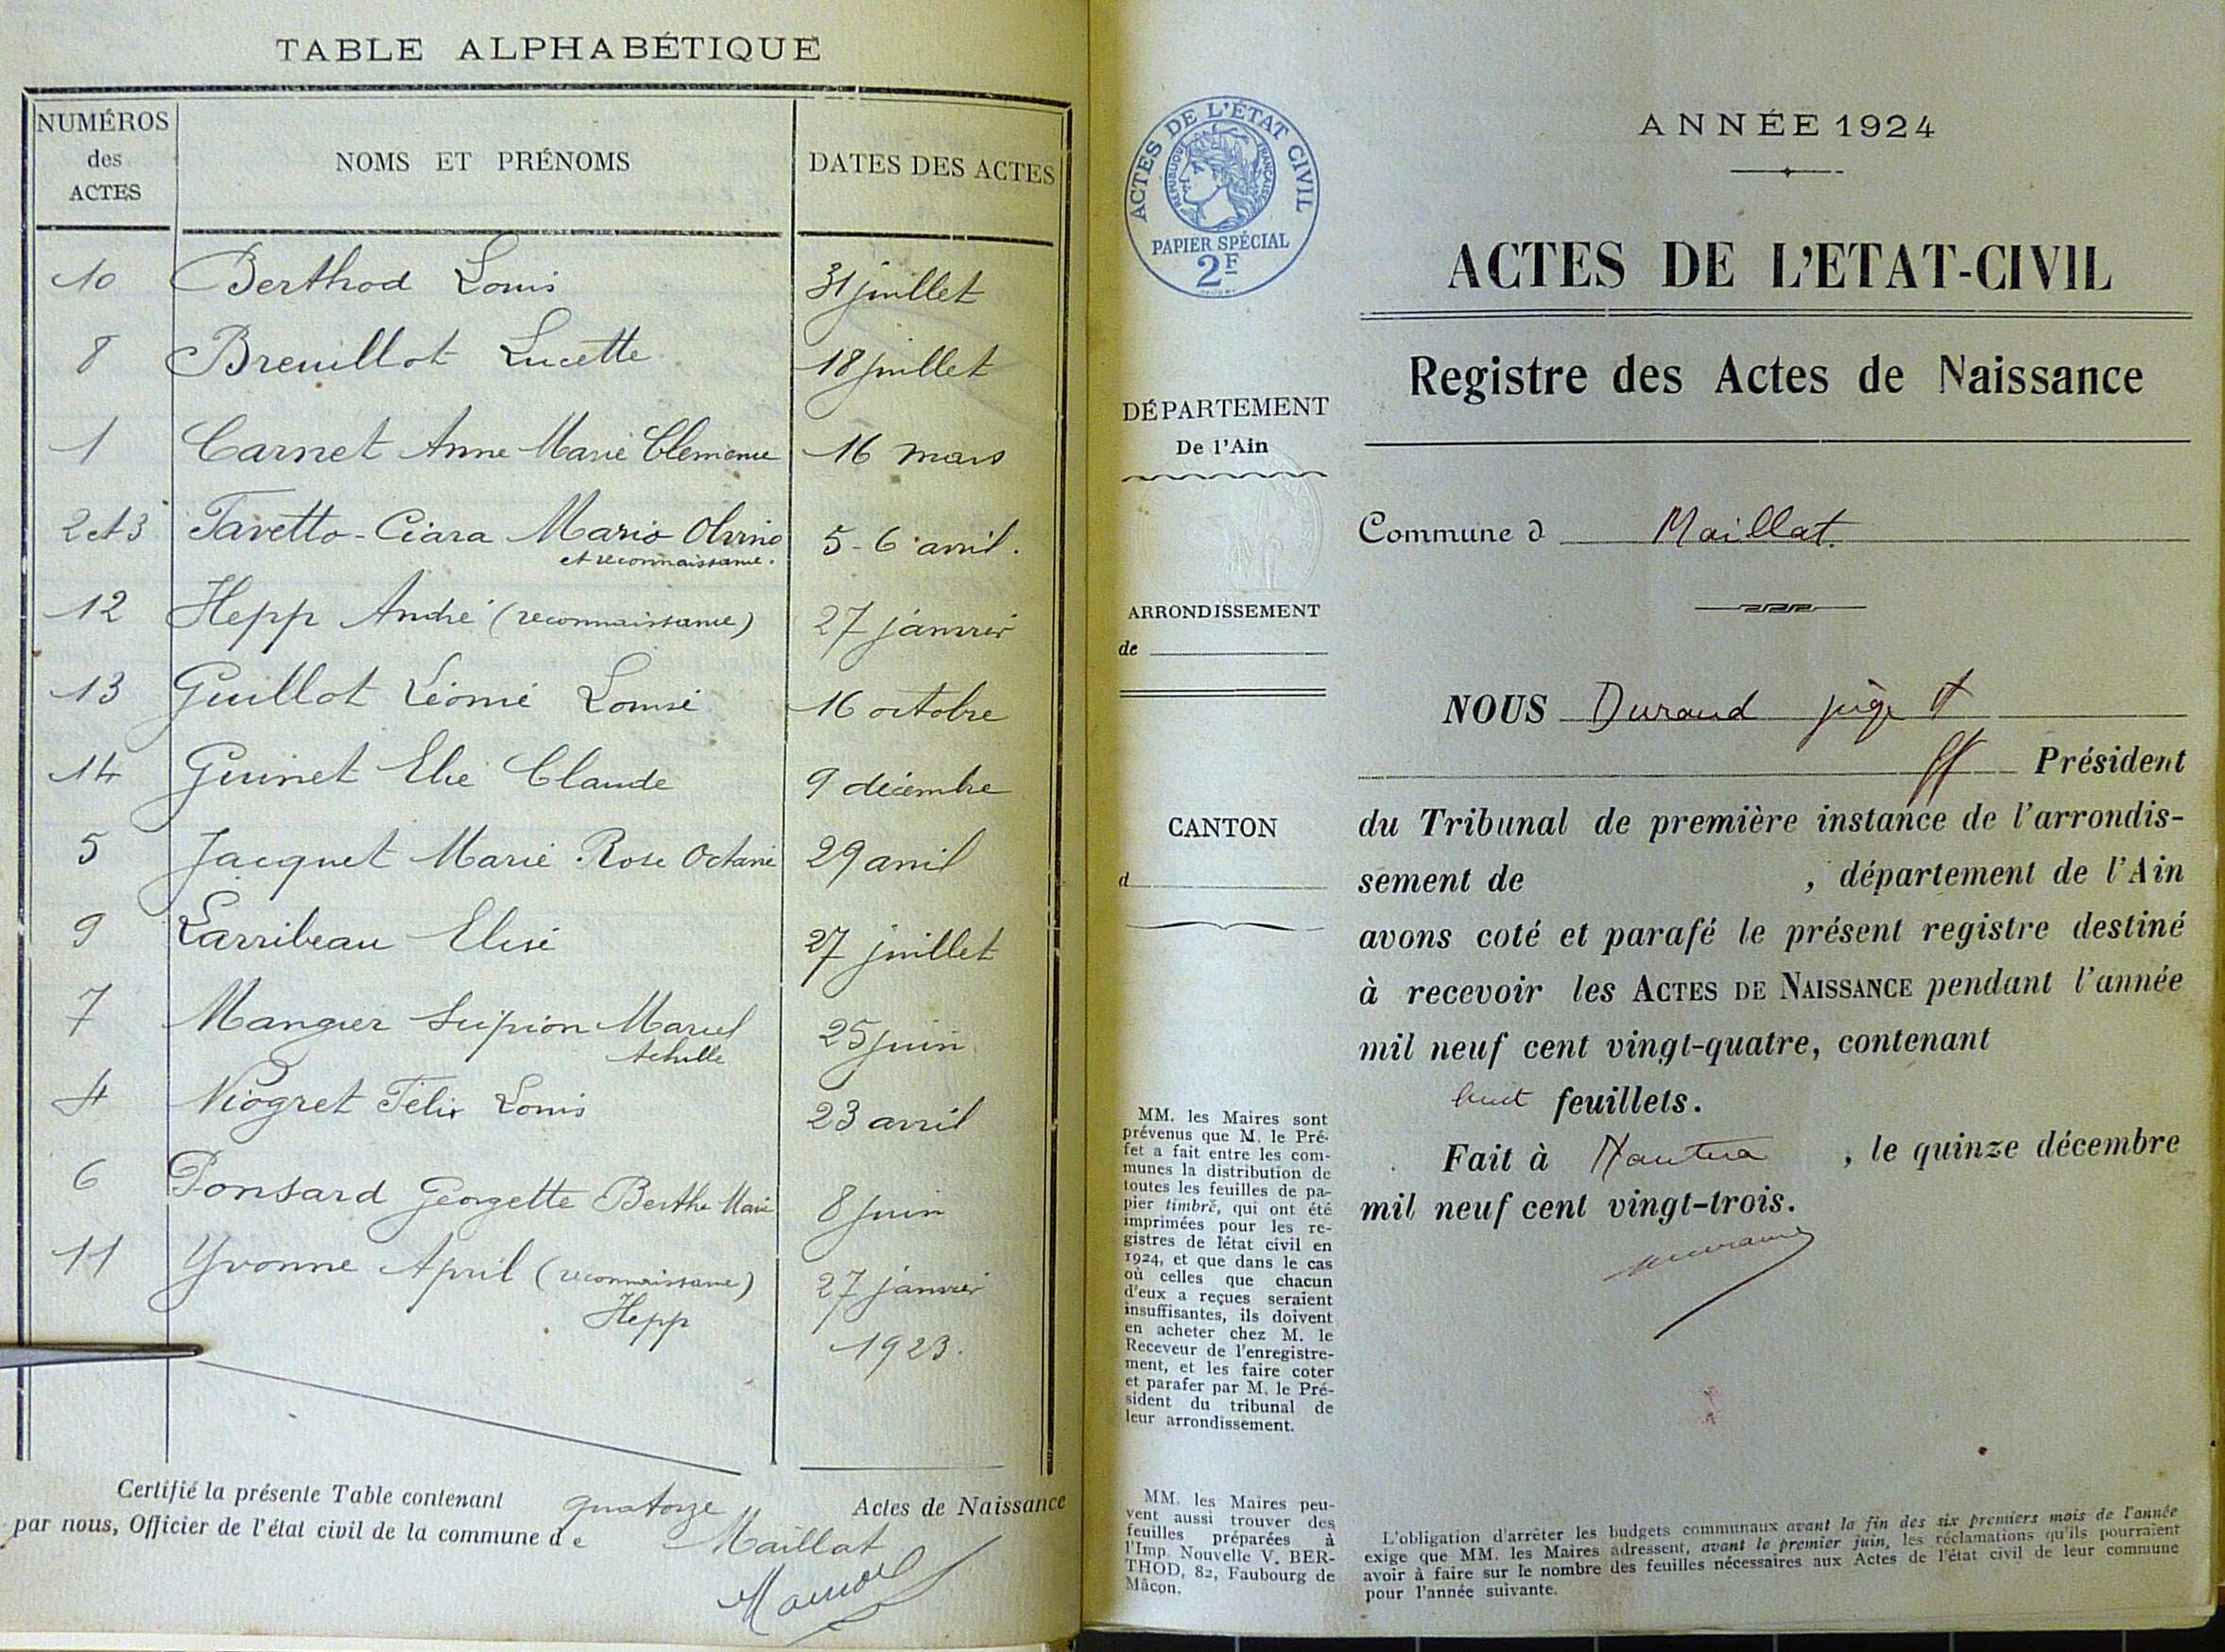 TABLE ALPHABÉTIQUE
NUMÉROS des ACTES
NOMS ET PRÉNOMS
DATES DES ACTES
10 Berthod Louis 31 juillet
8 Breuillot Lucette 18 juillet
1 Carnet Anne Marie Clémence 16 mars
2 et 3 Favetto-Ciara Mario Olivino 5-6 avril.
et reconnaissance.
12 Hepp André (reconnaissance) 27 janvier
13 Guillot Léonie Louise 16 octobre
14 Guinet Elie Claude 9 décembre
5 Jacquet Marie Rose Octavie 29 avril
9 Larribeau Elise 27 juillet
7 Mangier Scipion Marcel 25 juin
Achille
4 Niogret Félix Louis 23 avril
6 Ponsard Georgette Berthe Marie 8 juin
11 Yvonne April (reconnaissance) 27 janvier
Hepp
1923.
Certifié la présente Table contenant quatorze Actes de Naissance
par nous, Officier de l'état civil de la commune de Maillat
ACTES DE L'ÉTAT CIVIL
RÉPUBLIQUE FRANÇAISE
PAPIER SPÉCIAL
2F
DÉPARTEMENT
De l'Ain
ARRONDISSEMENT
de
CANTON
d
MM. les Maires sont
prévenus que M. le Pré-
fet a fait entre les com-
munes la distribution de
toutes les feuilles de pa-
pier timbré, qui ont été
imprimées pour les re-
gistres de l'état civil en
1924, et que dans le cas
où celles que chacun
d'eux a reçues seraient
insuffisantes, ils doivent
en acheter chez M. le
Receveur de l'enregistre-
ment, et les faire coter
et parafer par M. le Pré-
sident du tribunal de
leur arrondissement.
MM. les Maires peu-
vent aussi trouver des
feuilles préparées à
l'Imp. Nouvelle V. BER-
THOD, 82, Faubourg de
Mâcon.
ANNÉE 1924
ACTES DE L'ETAT-CIVIL
Registre des Actes de Naissance
Commune d Maillat.
NOUS Durand juge
ff Président
du Tribunal de première instance de l'arrondis-
sement de , département de l'Ain
avons coté et parafé le présent registre destiné
à recevoir les ACTES DE NAISSANCE pendant l'année
mil neuf cent vingt-quatre, contenant
huit feuillets.
Fait à Nantua , le quinze décembre
mil neuf cent vingt-trois.
L'obligation d'arrêter les budgets communaux avant la fin des six premiers mois de l'année
exige que MM. les Maires adressent, avant le premier juin, les réclamations qu'ils pourraient
avoir à faire sur le nombre des feuilles nécessaires aux Actes de l'état civil de leur commune
pour l'année suivante.